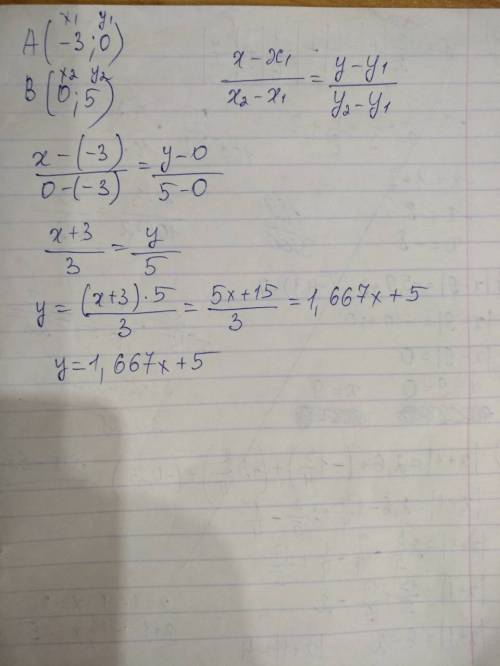 x₁ y₁
A(-3;0)
x₂ y₂
B(0;5)
(x-x₁)/(x₂-x₁) = (y-y₁)/(y₂-y₁)
(x-(-3))/(0-(-3)) = (y-0)/(5-0)
(x+3)/3 = y/5
y = ((x+3)·5)/3 = (5x+15)/3 = 1,667x+5
y=1,667x+5